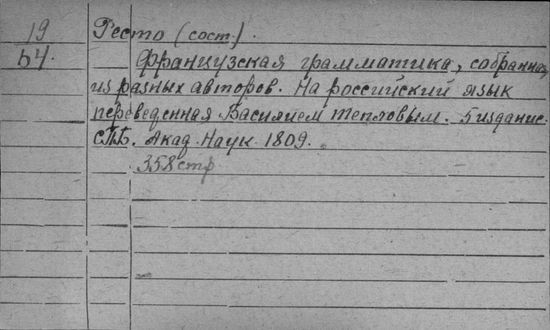 19
54.
Ресто (сост.).
Французская грамматика, собранная
из разных авторов. На российский язык
переведенная Василием Тепловым. 5 издание.
СПБ. Акад. Наук. 1809.
358 стр